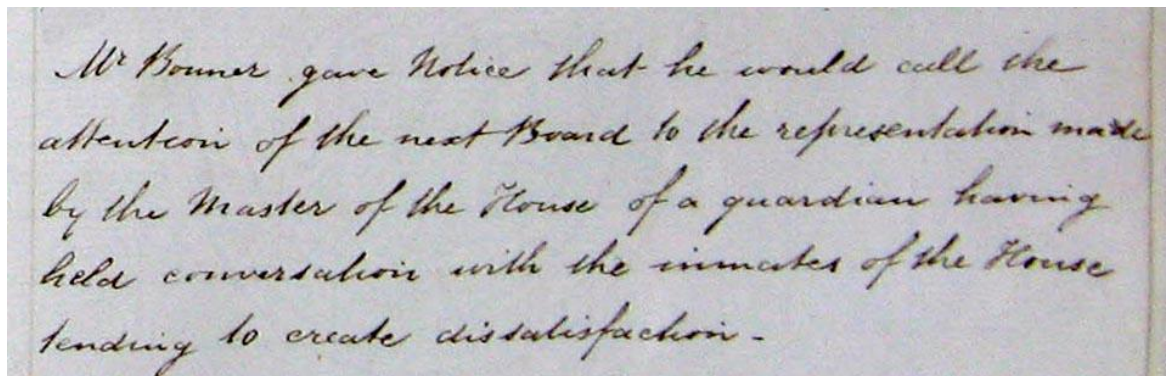 Mr Bonner gave Notice that he would call the
attention of the next Board to the representation made
by the Master of the House of a guardian having
held conversation with the inmates of the House
tending to create dissatisfaction -